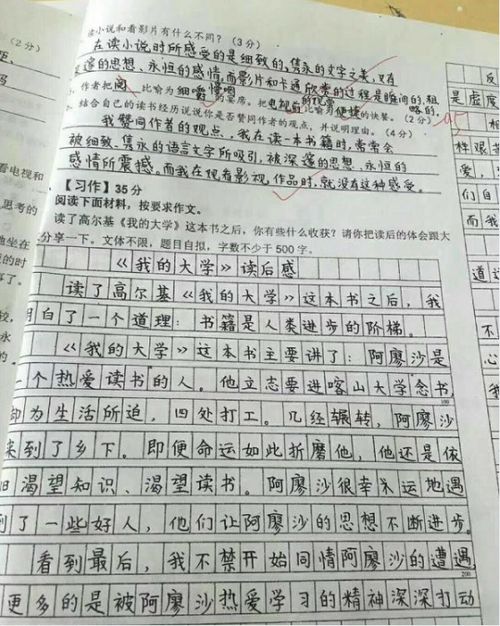 读小说和看影片有什么不同？（3分）
在读小说时所感受的是细致的，隽永的文字之美，又在
深邃的思想、永恒的感情，而影片和卡通欣赏的过程是瞬间的，粗略的
作者把阅 比喻为细嚼慢咽的宴席，把电视的 比喻为便捷的快餐。（2分）
结合自己的读书经历说说你是否赞同作者的观点，并说明理由。（4分）
我赞同作者的观点，我在读一本书籍时，常常会
被细致、隽永的语言文字所吸引，被深邃的思想、永恒的
感情所震撼，而我在观看影视作品时，就没有这种感受。
【习作】35分
阅读下面材料，按要求作文。
读了高尔基《我的大学》这本书之后，你有些什么收获？请你把读后的体会跟大
分享一下。文体不限，题目自拟，字数不少于500字。
《我的大学》读后感
读了高尔基《我的大学》这本书之后，我
明白了一个道理：书籍是人类进步的阶梯。
《我的大学》这本书主要讲了：阿廖沙是
一个热爱读书的人。他立志要进喀山大学念书，
却为生活所迫，四处打工。几经辗转，阿廖沙
来到了乡下。即便命运如此折磨他，他还是依
旧渴望知识、渴望读书。阿廖沙很幸运地遇
到了一些好人，他们让阿廖沙的思想不断进步。
看到最后，我不禁开始同情阿廖沙的遭遇
更多的是被阿廖沙热爱学习的精神深深打动
（2分）
看电视和
思考的
他坐在
的时
事了。
较，
永
的
100
200
反
是虚度
样艰苦
爱，
们自
而我
道
不
心
我